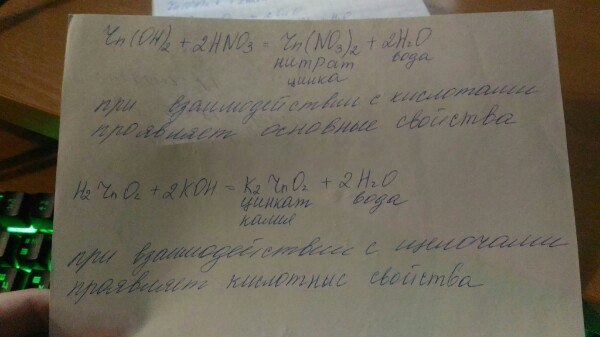 Zn(OH)2 + 2HNO3 = Zn(NO3)2 + 2H2O
нитрат вода
цинка
при взаимодействии с кислотами
проявляет основные свойства
H2ZnO2 + 2KOH = K2ZnO2 + 2H2O
цинкат вода
калия
при взаимодействии с щелочами
проявляет кислотные свойства